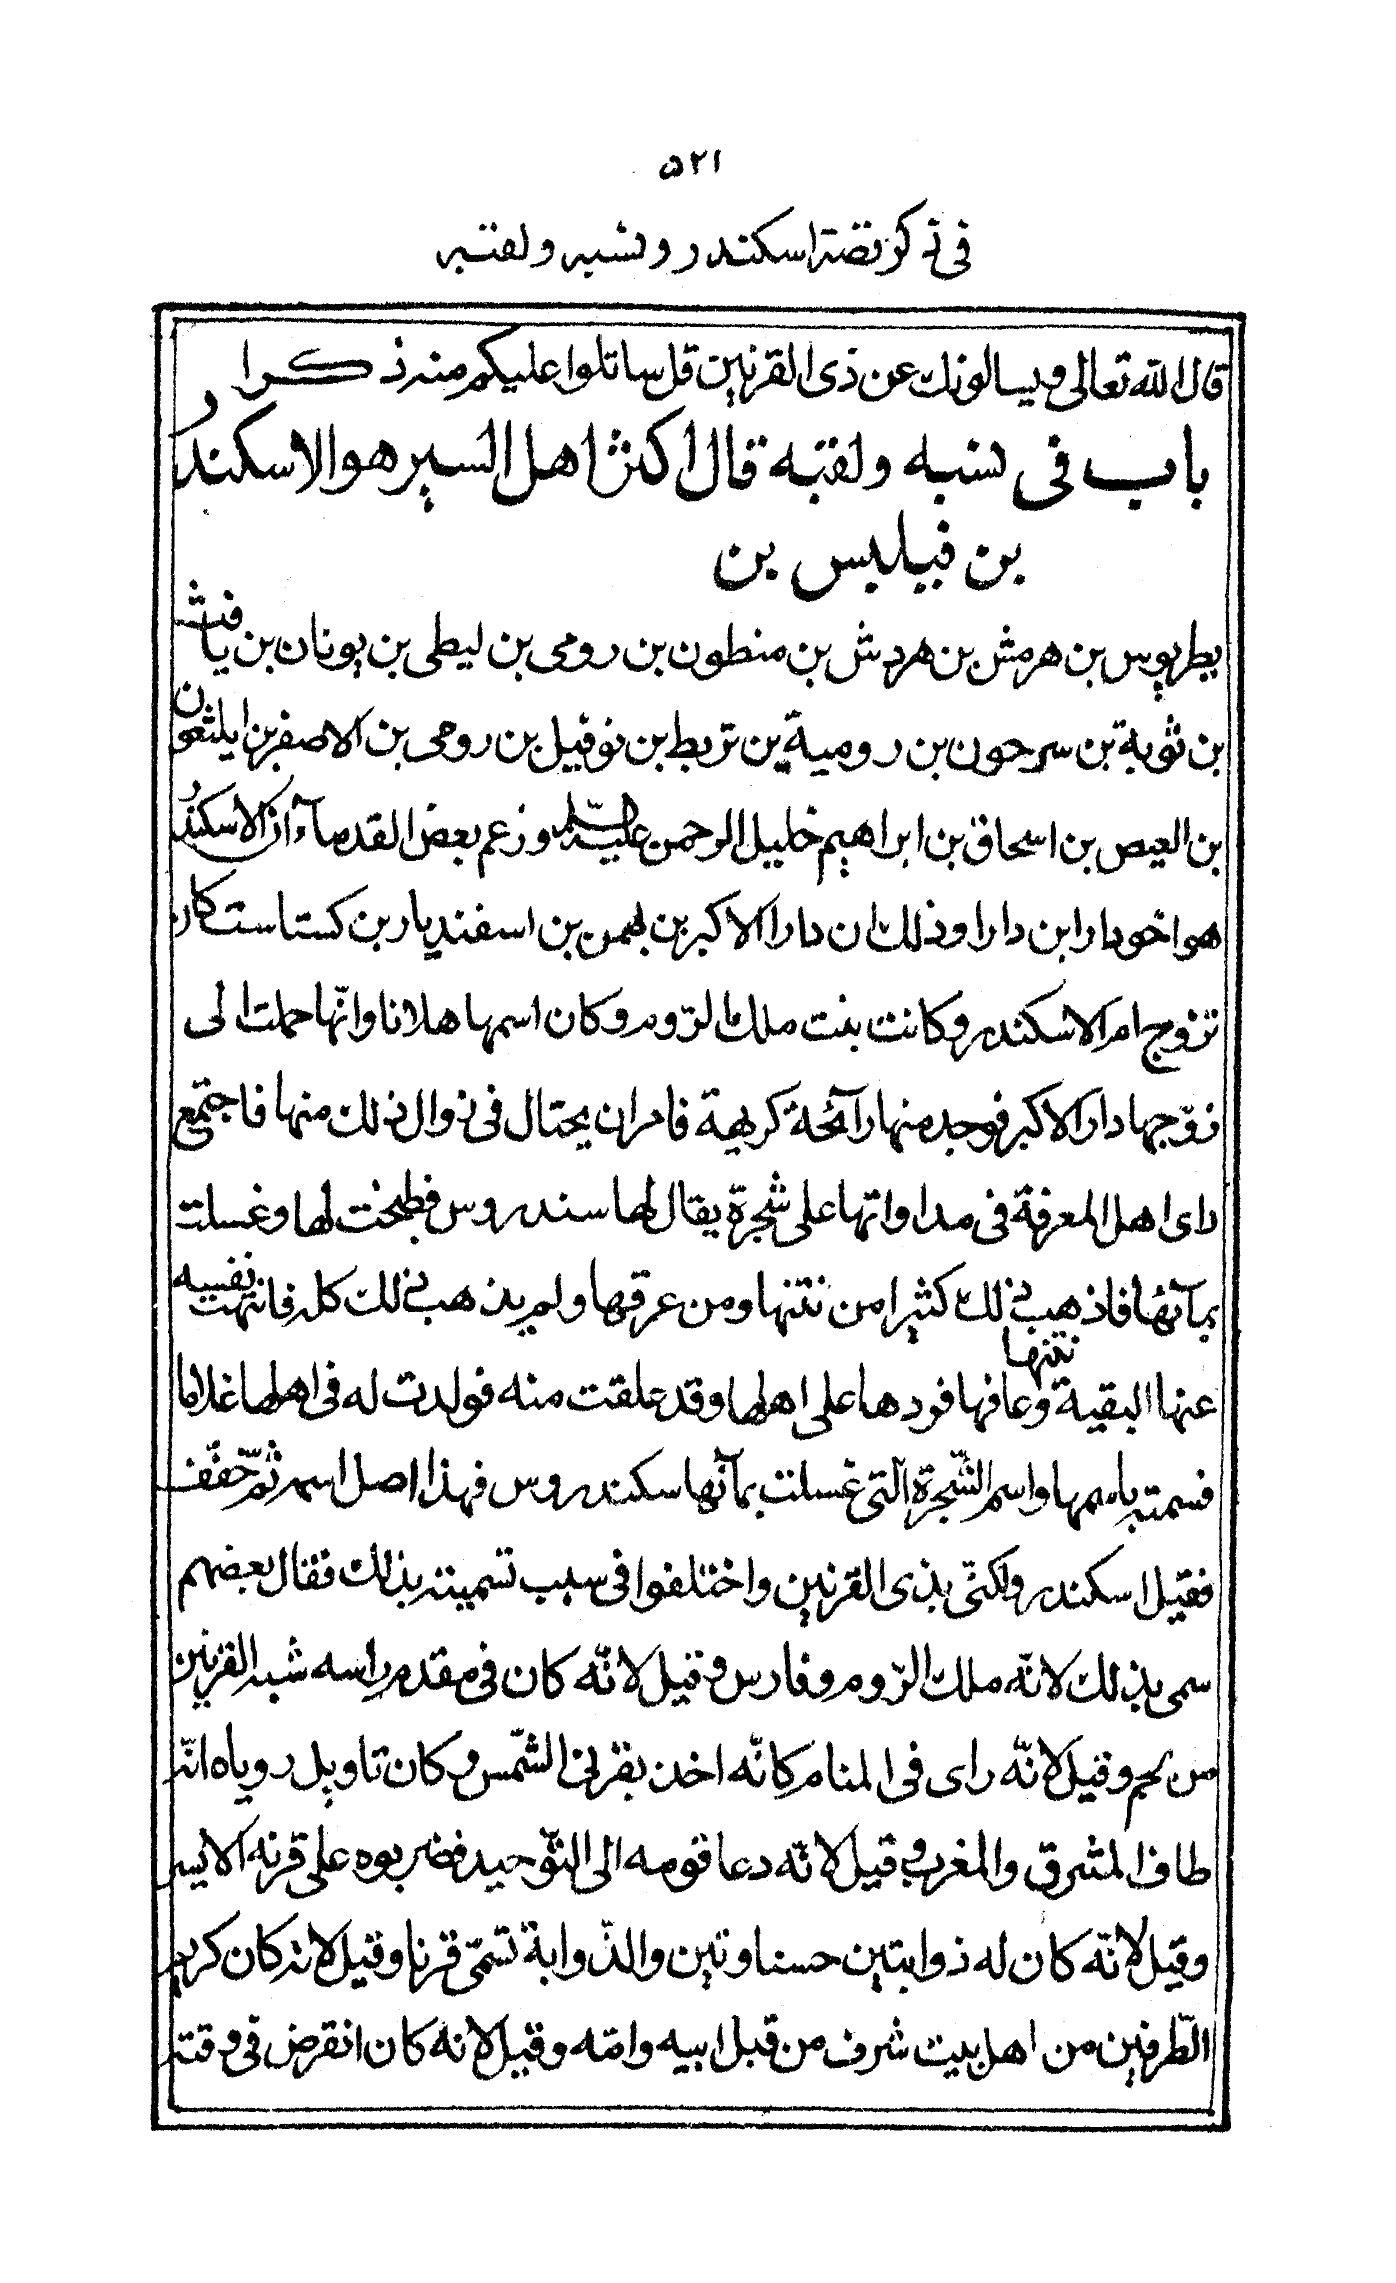 ٥٢١
في ذكر قصة اسكندر ونسبه ولقبه
قال الله تعالى ويسالونك عن ذى القرنين قل ساتلوا عليكم منه ذكرا
باب في نسبه ولقبه قال اكثر اهل السير هو الاسكندر
بن فيلبس بن
بطريوس بن هرمش بن هردش بن منطون بن رومى بن ليطى بن يونان بن يافث
بن ثوبة بن سرحون بن رومية بن تربط بن نوفيل بن رومى بن الاصفر بن ايلثعون
بن العيص بن اسحاق بن ابراهيم خليل الرحمن عليه السلم وزعم بعض القدمآء ان الاسكندر
هو اخو دارا ابن دارا وذلك ان دارا الاكبر بن بهمن بن اسفنديار بن كستاست كان
تزوج ام الاسكندر وكانت بنت ملك الرّوم وكان اسمها هلانا وانّها حملت الى
زوّجها دارا الاكبر فوجد منها رآئحة كريهة فامر ان يحتال فى زوال ذلك منها فاجتمع
راى اهل المعرفة فى مداواتها على شجرة يقال لها سندروس فطبخت لها وغسلت
بمآئها فاذهب ذلك كثيرا من نتنها ومن عرقها ولم يذهب ذلك كله فانتهت نفسه
نتنها
عنها البقية وعافها فردها على اهلها وقد علقت منه فولدت له فى اهلها غلاما
فسمته باسمها واسم الشّجرة الّتى غسلت بمآئها سكندروس فهذا اصل اسمه ثمّ خفّف
فقيل اسكندر ولكنّى بذى القرنين واختلفوا فى سبب تسميته بذلك فقال بعضهم
سمى بذلك لانّه ملك الرّوم وفارس وقيل لانّه كان فى مقدم راسه شبه القرنين
من لحم وقيل لانّه راى فى المنام كانّه اخذ بقرنى الشّمس وكان تاويل روياه انّه
طاف المشرق والمغرب وقيل لانّه دعا قومه الى التّوحيد فضربوه على قرنه الايسر
وقيل لانّه كان له ذوابتين حسناوتين والذّوابة تسمّى قرنا وقيل لانه كان كريم
الطّرفين من اهل بيت شرف من قبل ابيه وامّه وقيل لانه كان انقرض فى وقته